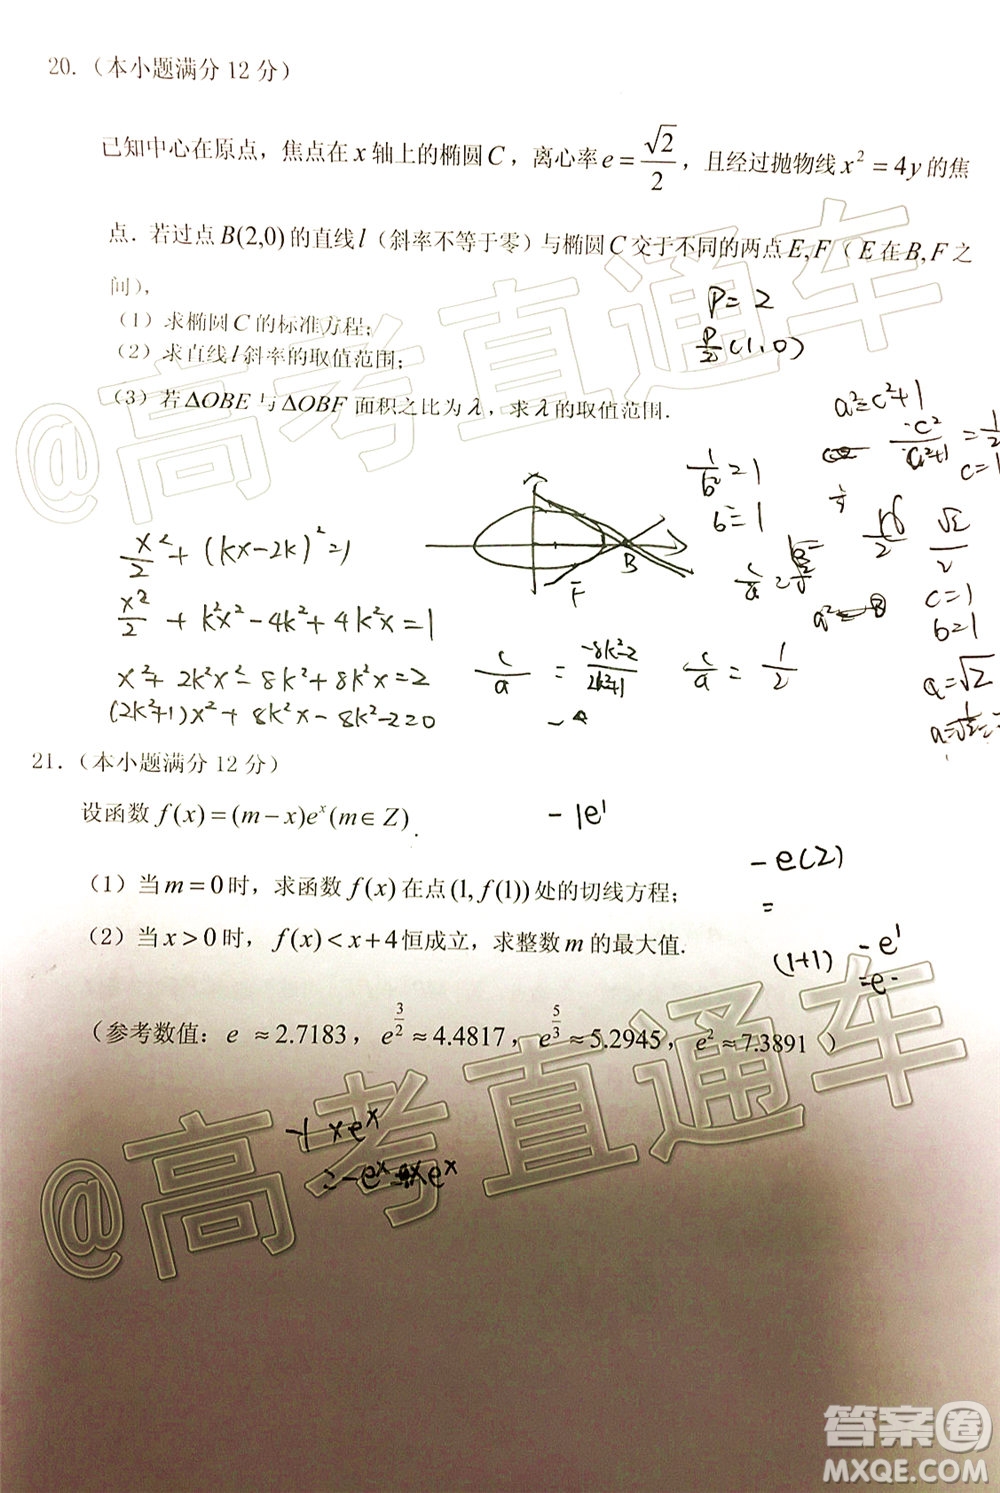 20.（本小题满分 12 分）
已知中心在原点，焦点在 x 轴上的椭圆 C，离心率 e = √2/2，且经过抛物线 x² = 4y 的焦
点．若过点 B(2,0) 的直线 l（斜率不等于零）与椭圆 C 交于不同的两点 E,F（E 在 B,F 之
间），
P = 2
（1）求椭圆 C 的标准方程；
P/2 (1,0)
（2）求直线 l 斜率的取值范围；
（3）若 ΔOBE 与 ΔOBF 面积之比为 λ，求 λ 的取值范围．
a² = c²+1
c²/(c²+1) = 1/2
c = 1
1/b² = 1
b = 1
√2/2
c = 1
b = 1
a = √2
B
F
x²/2 + (kx-2k)² = 1
x²/2 + k²x² - 4k² + 4k²x = 1
x² + 2k²x² - 8k² + 8k²x = 2
(2k²+1)x² + 8k²x - 8k² - 2 = 0
c/a = (-8k²-2)/(2k²+1)
c/a = 1/2
21.（本小题满分 12 分）
设函数 f(x) = (m - x)eˣ (m ∈ Z).
- 1e¹
- e(2)
=
（1）当 m = 0 时，求函数 f(x) 在点 (1, f(1)) 处的切线方程；
（2）当 x > 0 时，f(x) < x + 4 恒成立，求整数 m 的最大值.
(1+1) - e¹
= e -
（参考数值：e ≈ 2.7183，e^(3/2) ≈ 4.4817，e^(5/3) ≈ 5.2945，e² ≈ 7.3891）
-1 xeˣ
@高考直通车
@高考直通车
答案圈
MXQE.COM